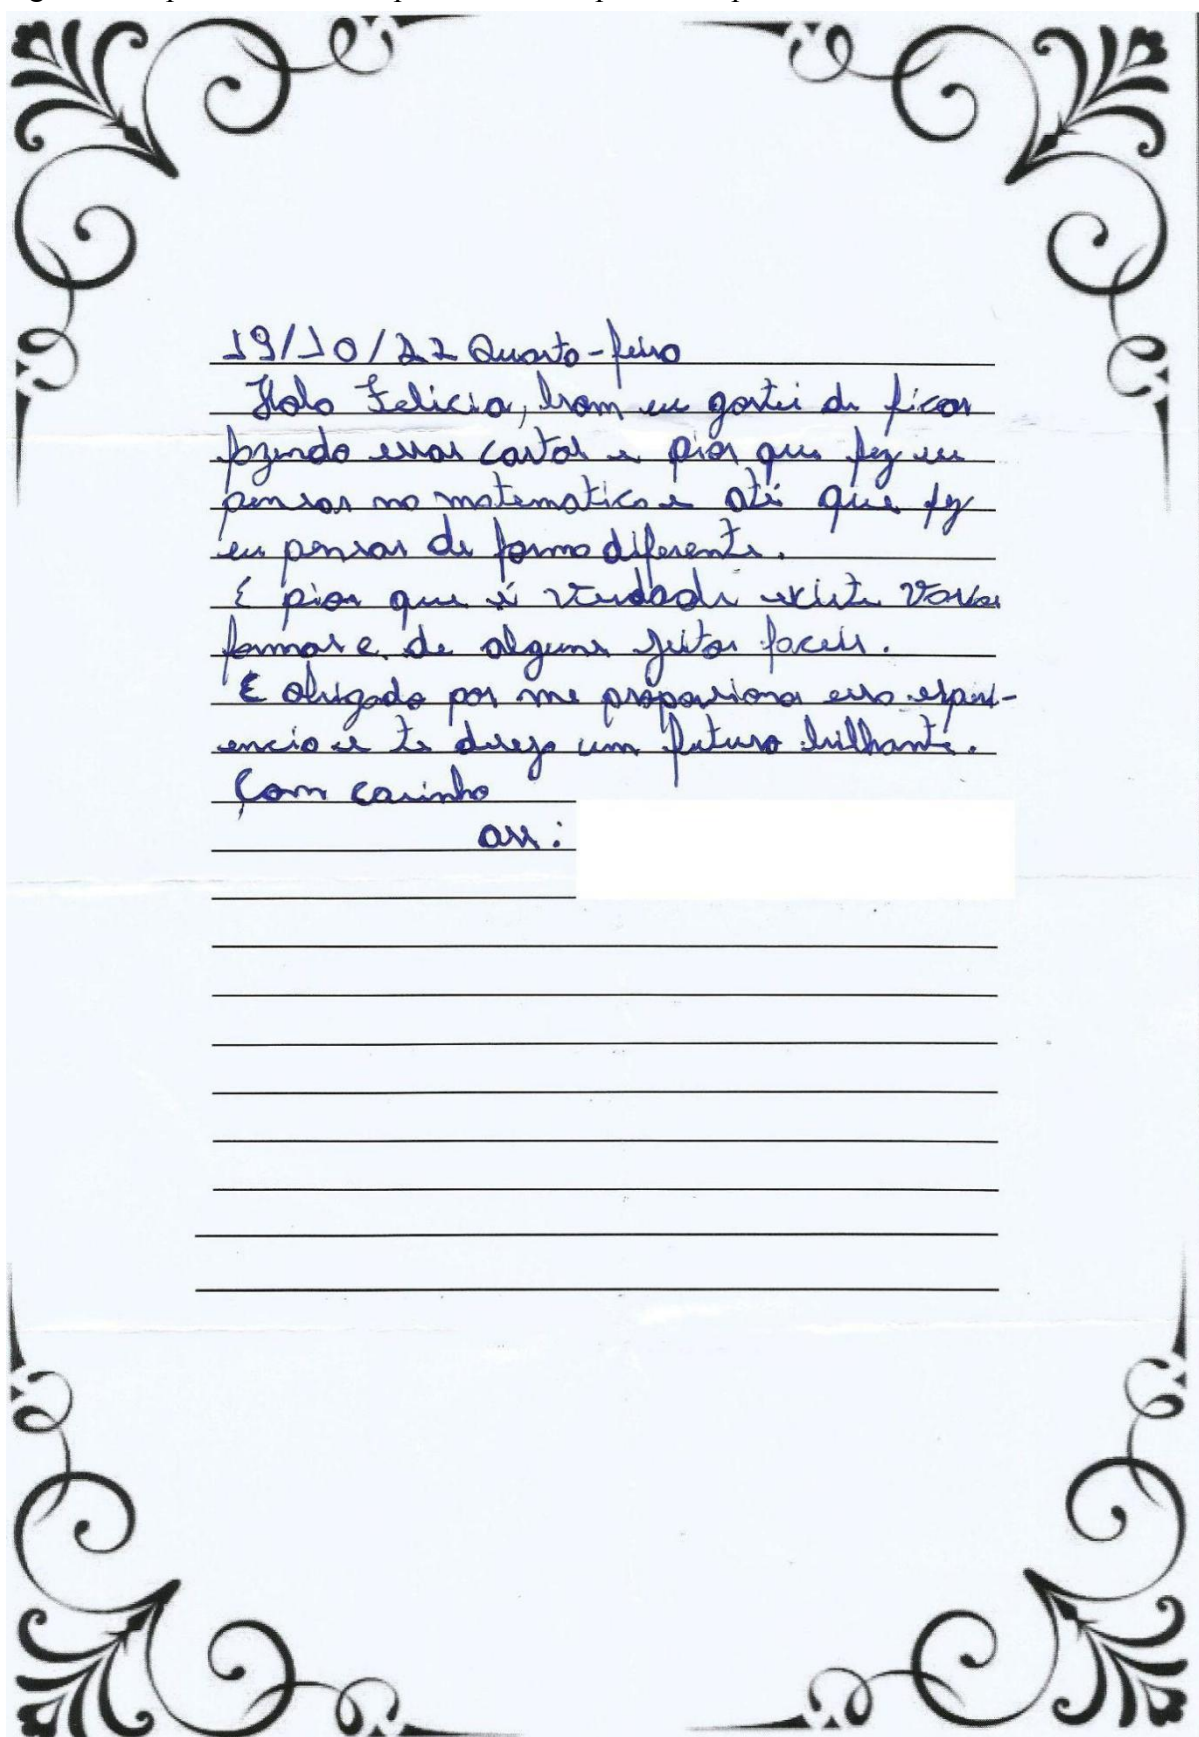 19/10/22 Quarta-feira
Hola Felicia, bom eu gostei de ficar
fazendo essas cartas e pior que fez eu
pensar na matematica e até que fez
eu pensar de forma diferente.
E pior que é verdade existe varias
formas e de alguns jeitos faceis.
E obrigado por me proporsiona essa esperi-
encia e te desejo um futuro brilhante.
Com carinho
ass: